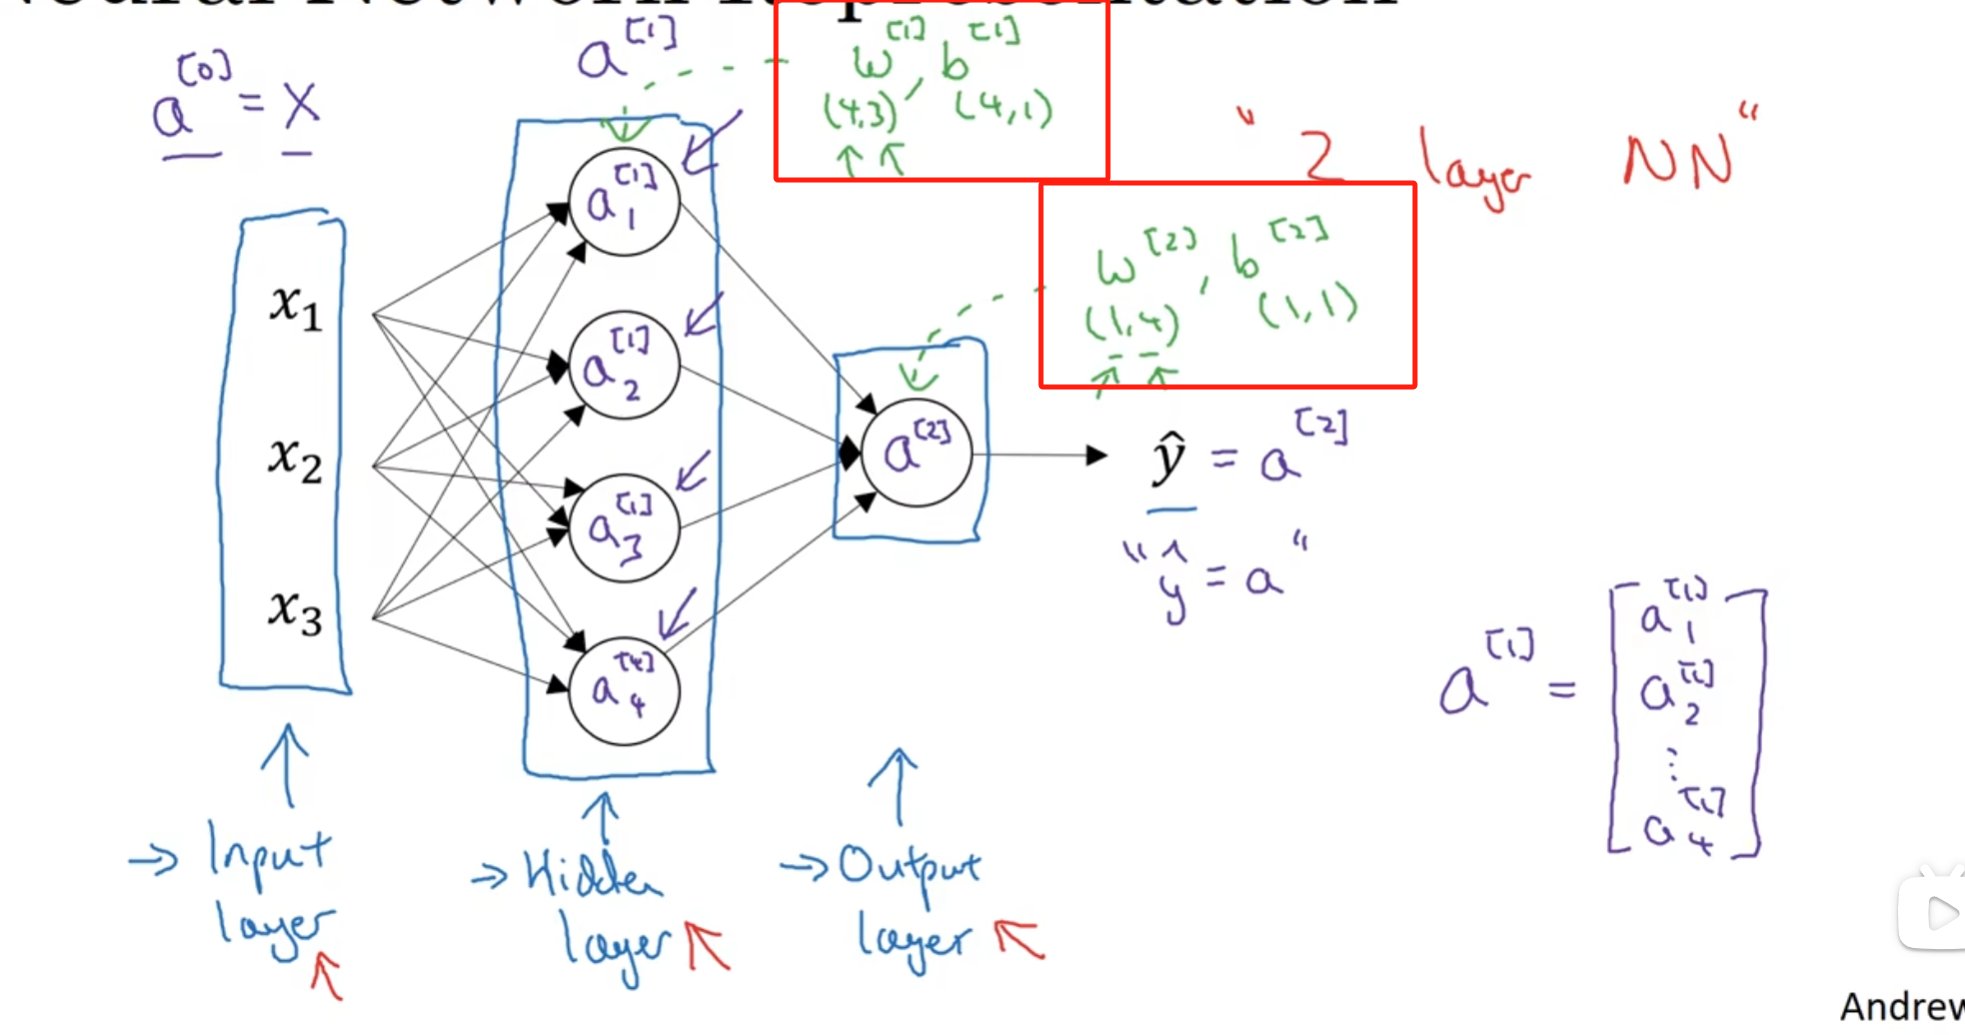 Neural Network Representation
a^[0] = X
a^[1]
w^[1], b^[1]
(4,3) (4,1)
"2 layer NN"
w^[2], b^[2]
(1,4) (1,1)
x₁
x₂
x₃
a₁^[1]
a₂^[1]
a₃^[1]
a₄^[4]
a^[2]
ŷ = a^[2]
"ŷ = a"
a^[1] = [a₁^[1]
a₂^[1]
⋮
a₄^[1]]
→ Input layer
→ Hidden layer
→ Output layer
Andrew